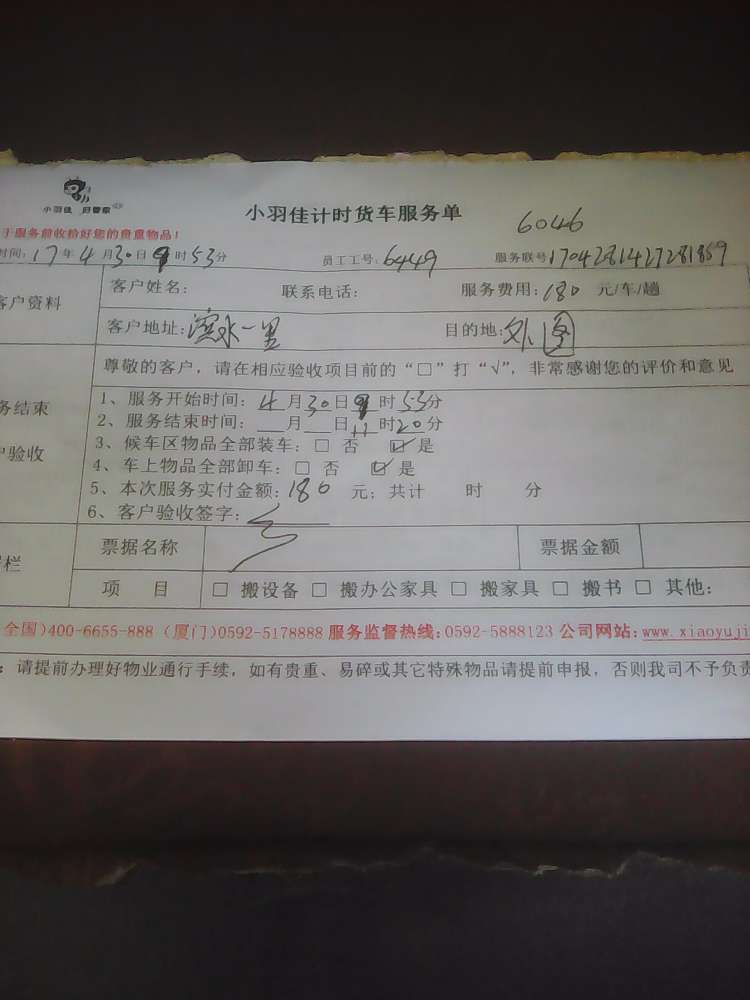 小羽佳 好管家
小羽佳计时货车服务单
6046
于服务前收拾好您的贵重物品！
时间：17年4月30日9时53分 员工工号：6449 服务联号1704281427281859
客户资料 客户姓名： 联系电话： 服务费用：180 元/车/趟
客户地址：滨水一里 目的地：外图
尊敬的客户，请在相应验收项目前的“□”打“√”，非常感谢您的评价和意见
务结束
户验收
1、服务开始时间：4月30日9时53分
2、服务结束时间：__月__日11时20分
3、候车区物品全部装车：□ 否 ☑ 是
4、车上物品全部卸车：□ 否 ☑ 是
5、本次服务实付金额：180 元；共计 时 分
6、客户验收签字：
栏 票据名称 票据金额
项 目 □ 搬设备 □ 搬办公家具 □ 搬家具 □ 搬书 □ 其他：
全国)400-6655-888 (厦门)0592-5178888 服务监督热线：0592-5888123 公司网站：www.xiaoyuji
：请提前办理好物业通行手续，如有贵重、易碎或其它特殊物品请提前申报，否则我司不予负责